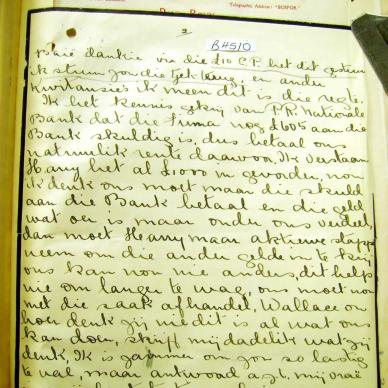 Telegraphic Address: "BOSPOR."
2
B4510
Baie dankie vir die £10 C.P. het dit gestuur
ik stuur jou die Tjek terug, en ander
Kwitansies ik meen dit is die regte.
Ik het kennis gekry van P.R. Nationale
Bank dat die firma nog £605 aan die
Bank skuldig is, dus betaal ons
natuurlik rente daarvoor, Ik verstaan
Harry het al £1000 in gevorder, nou
ik denk ons moet maar die skuld
aan die Bank betaal en die geld
wat oor is maar onder ons verdeel,
dan moet Harry maar aktiewe stappe
neem om die ander gelde in te kry
ons kan nou nie anders, dit help
nie om langer te wag, ons moet nou
met die saak afhandel, Wallace en
hoe denk jy niedit is al wat ons
kan doen, skryf my dadelik wat jy
denk, Ik is jammer om jou so lastig
te val maar antwoord a.g.t. my vraë